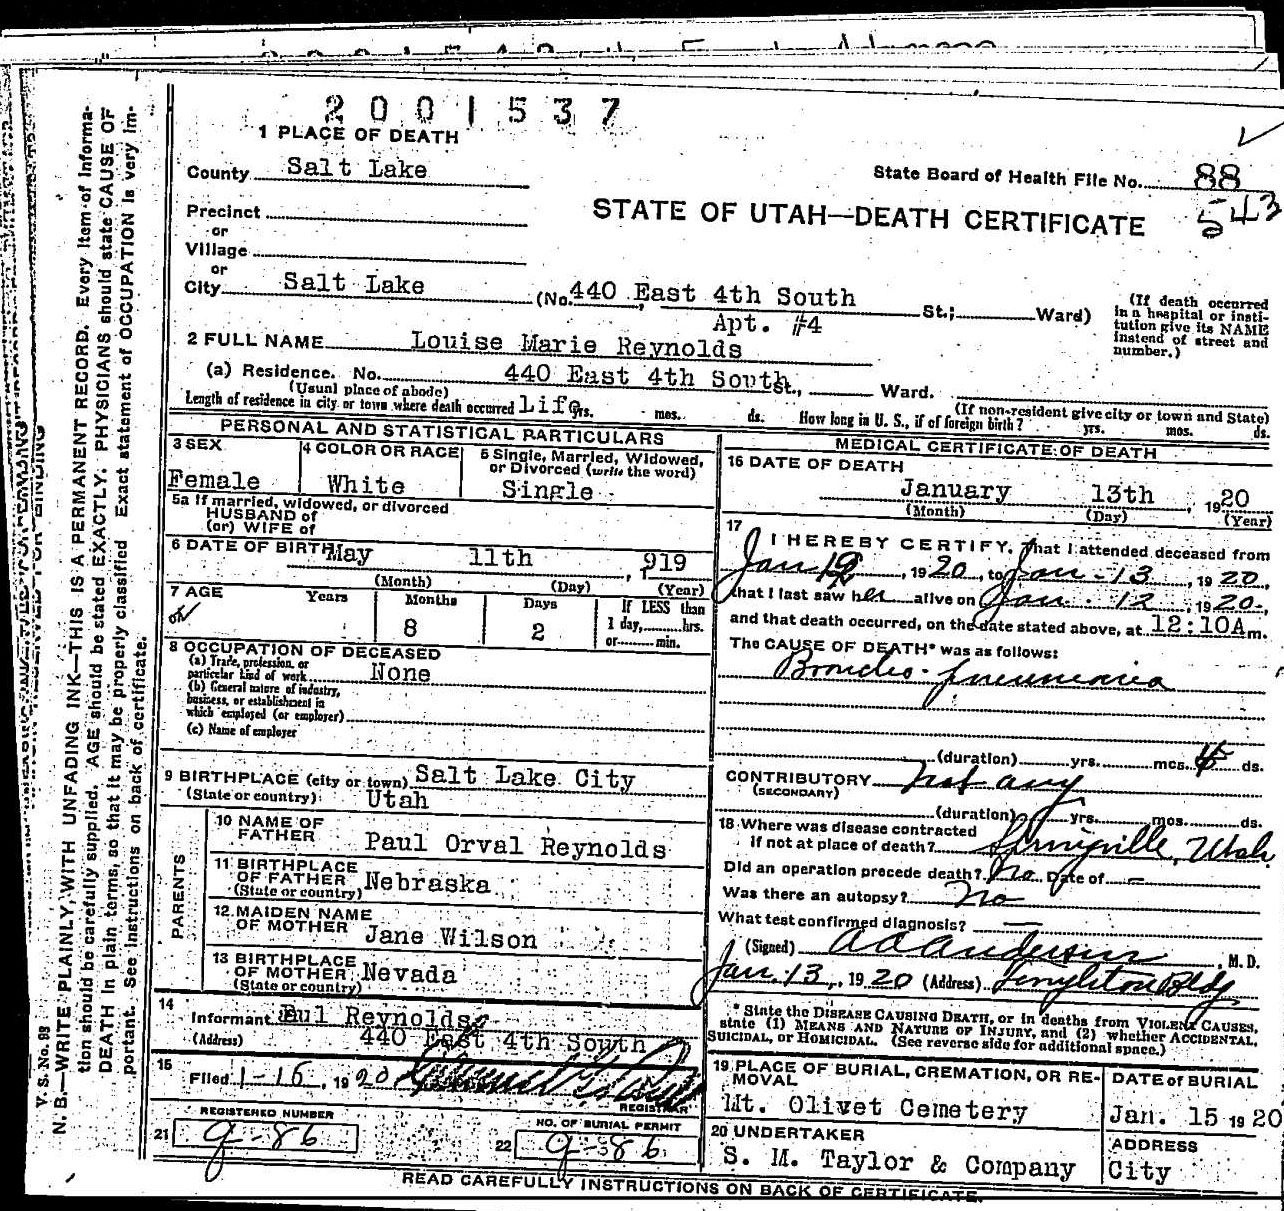 2001537
1 PLACE OF DEATH
County Salt Lake
State Board of Health File No. 88
543
Precinct
or
STATE OF UTAH—DEATH CERTIFICATE
Village
or
City Salt Lake (No. 440 East 4th South St.; Ward)
Apt. #4
(If death occurred in a hospital or insti-
tution give its NAME
instead of street and
number.)
2 FULL NAME Louise Marie Reynolds
(a) Residence. No. 440 East 4th South St., Ward.
(Usual place of abode) (If non-resident give city or town and State)
Length of residence in city or town where death occurred Life yrs. mos. ds. How long in U. S., if of foreign birth? yrs. mos. ds.
PERSONAL AND STATISTICAL PARTICULARS
3 SEX
Female
4 COLOR OR RACE
White
5 Single, Married, Widowed,
or Divorced (write the word)
Single
5a If married, widowed, or divorced
HUSBAND of
(or) WIFE of
6 DATE OF BIRTH May 11th, 919
(Month) (Day) (Year)
7 AGE Years Months Days If LESS than
8 2 1 day,........hrs.
or........min.
8 OCCUPATION OF DECEASED
(a) Trade, profession, or
particular kind of work None
(b) General nature of industry,
business, or establishment in
which employed (or employer)
(c) Name of employer
9 BIRTHPLACE (city or town) Salt Lake City
(State or country) Utah
PARENTS
10 NAME OF
FATHER Paul Orval Reynolds
11 BIRTHPLACE
OF FATHER Nebraska
(State or country)
12 MAIDEN NAME
OF MOTHER Jane Wilson
13 BIRTHPLACE
OF MOTHER Nevada
(State or country)
14
Informant Paul Reynolds
(Address) 440 East 4th South
15
Filed 1-16, 1920
REGISTRAR
REGISTERED NUMBER
21 g-86
NO. OF BURIAL PERMIT
22 g-86
MEDICAL CERTIFICATE OF DEATH
16 DATE OF DEATH
January 13th, 1920
(Month) (Day) (Year)
17
I HEREBY CERTIFY, That I attended deceased from
Jan 12, 1920, to Jan-13, 1920,
that I last saw her alive on Jan. 12, 1920,
and that death occurred, on the date stated above, at 12:10A m.
The CAUSE OF DEATH* was as follows:
Broncho-pneumonia
(duration) yrs. mos. ds.
CONTRIBUTORY not any
(SECONDARY)
(duration) yrs. mos. ds.
18 Where was disease contracted
if not at place of death? Springville, Utah
Did an operation precede death? No Date of —
Was there an autopsy? No
What test confirmed diagnosis? —
(Signed) A A Anderson, M. D.
Jan. 13, 1920 (Address) Templeton Bldg.
* State the DISEASE CAUSING DEATH, or in deaths from VIOLENT CAUSES,
state (1) MEANS AND NATURE OF INJURY, and (2) whether ACCIDENTAL,
SUICIDAL, or HOMICIDAL. (See reverse side for additional space.)
19 PLACE OF BURIAL, CREMATION, OR RE-
MOVAL
Mt. Olivet Cemetery
DATE of BURIAL
Jan. 15 1920
20 UNDERTAKER
S. M. Taylor & Company
ADDRESS
City
READ CAREFULLY INSTRUCTIONS ON BACK OF CERTIFICATE.
V. S. No. 98
N. B.—WRITE PLAINLY, WITH UNFADING INK—THIS IS A PERMANENT RECORD. Every item of informa-
tion should be carefully supplied. AGE should be stated EXACTLY. PHYSICIANS should state CAUSE OF
DEATH in plain terms, so that it may be properly classified. Exact statement of OCCUPATION is very im-
portant. See instructions on back of certificate.